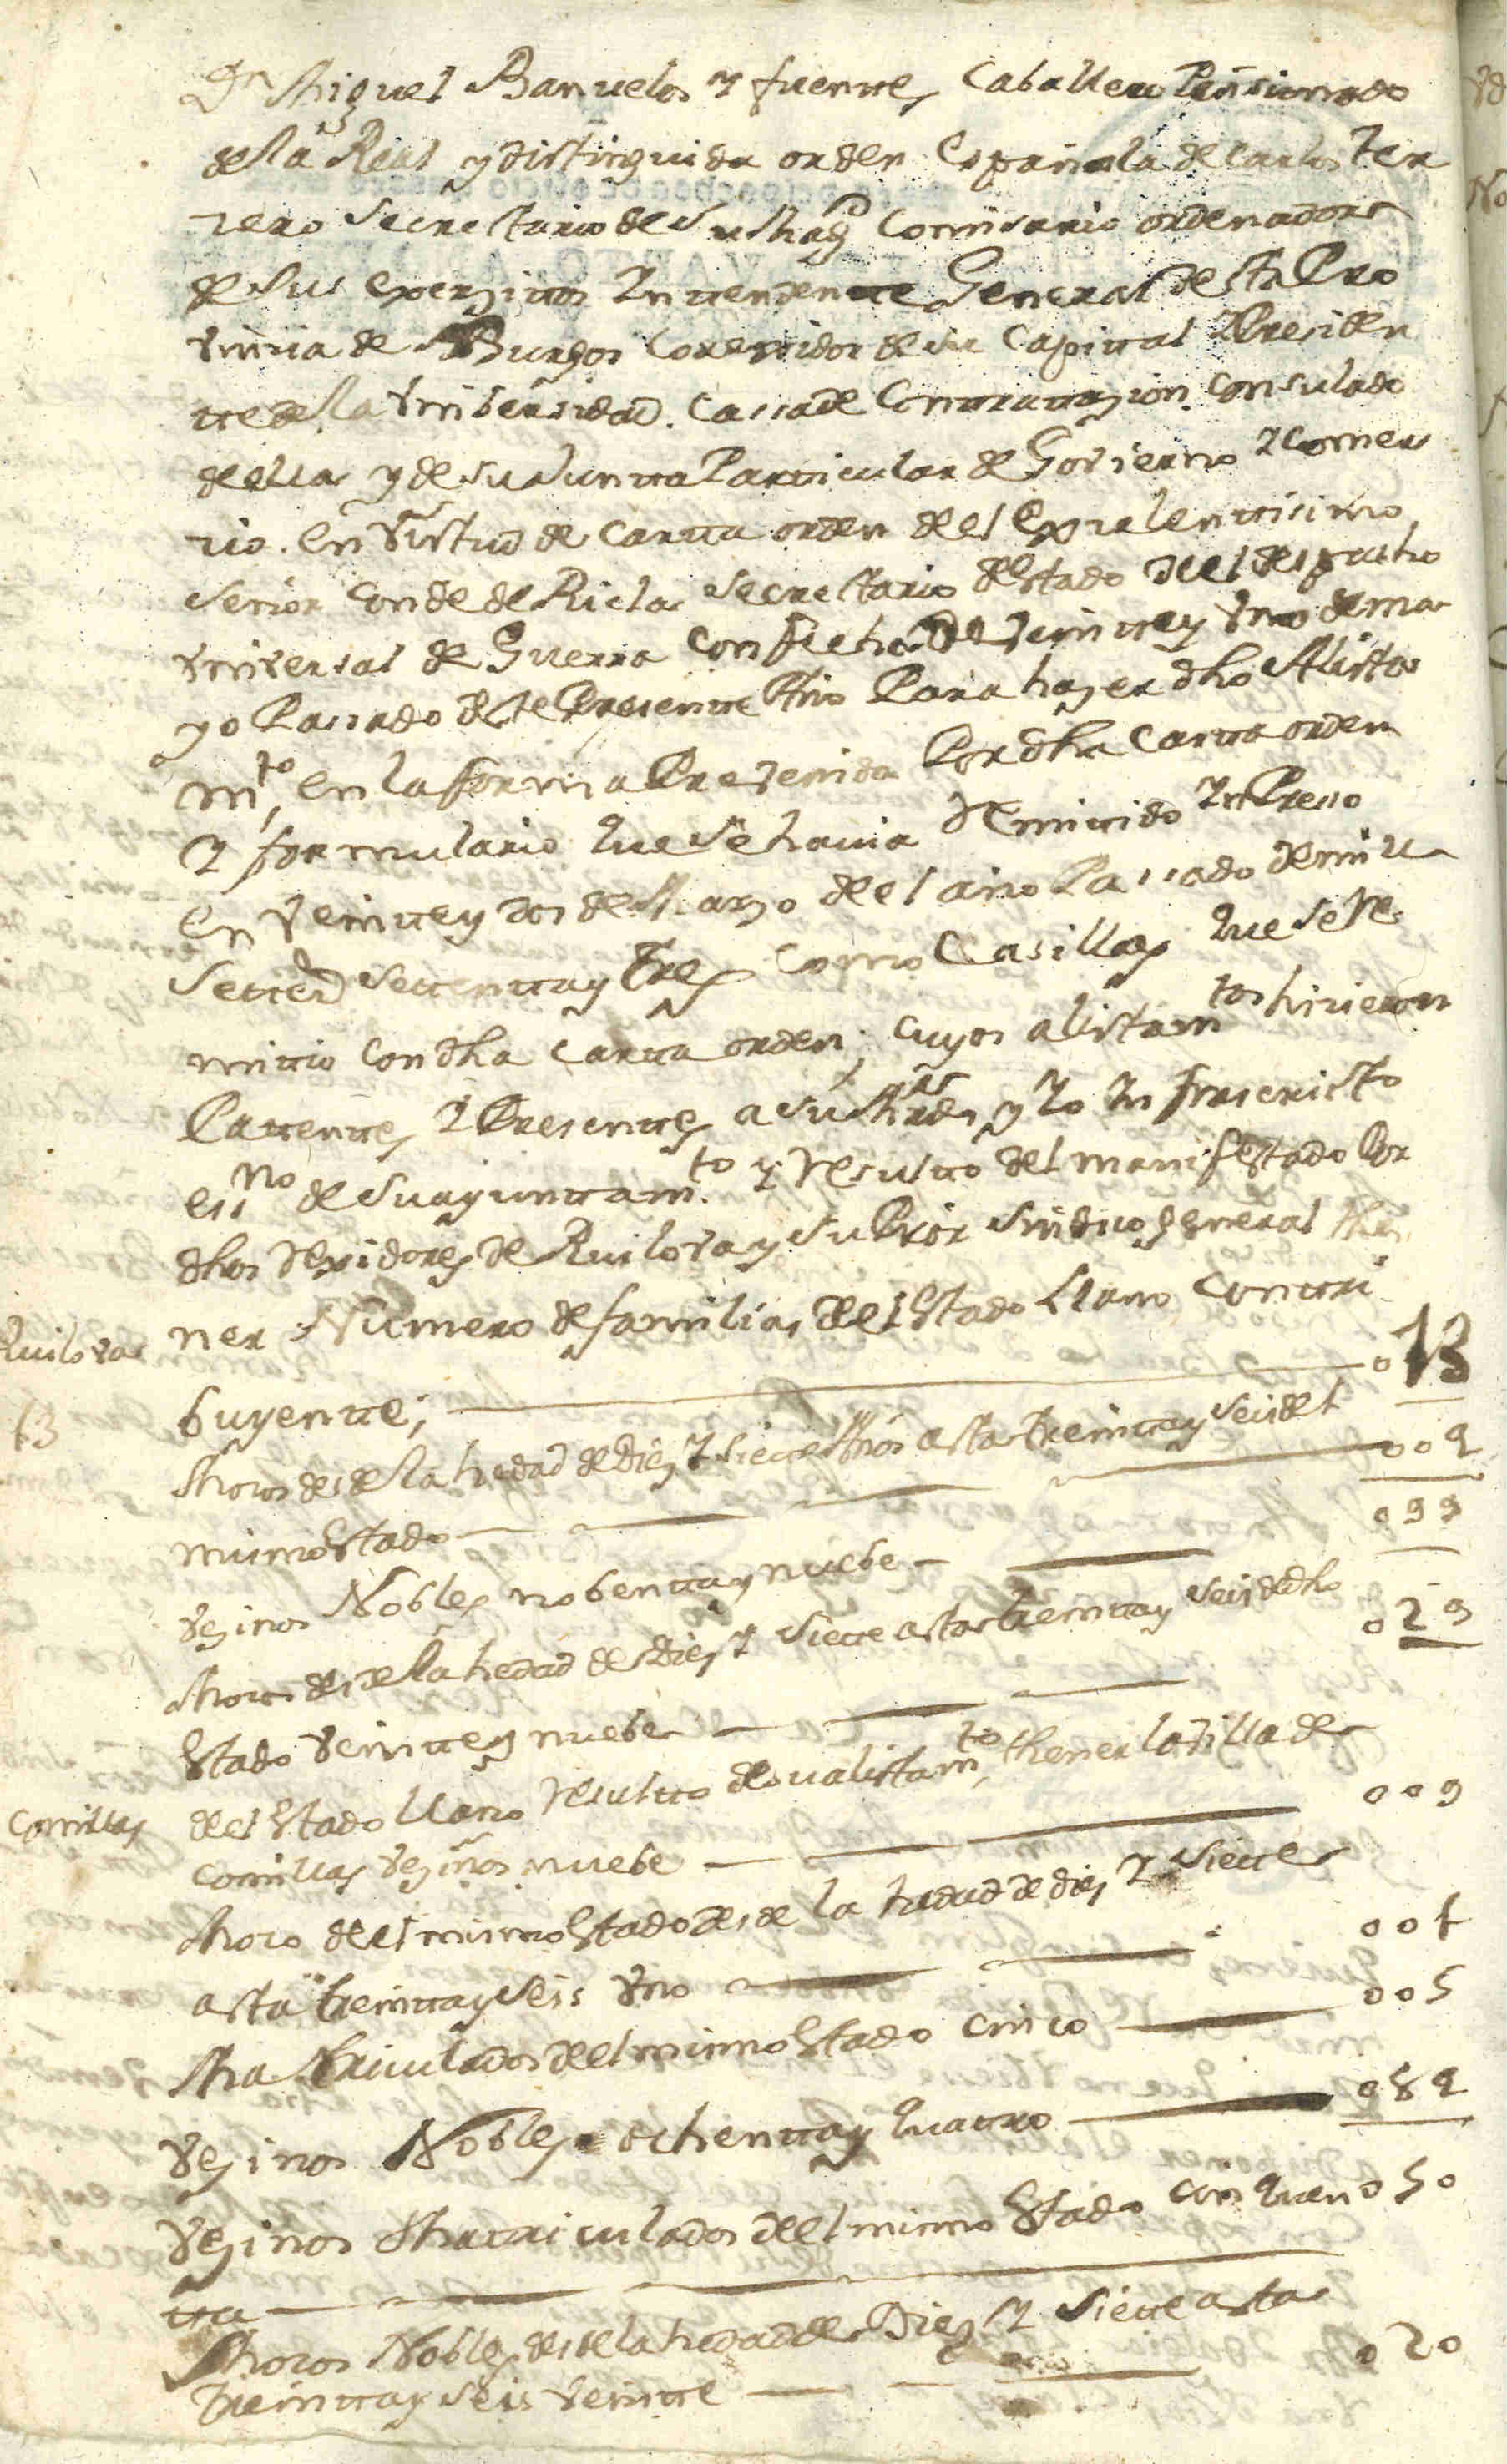 Dn Miguel Banuelos y fuentes Caballero Pensionado
de la Real y distinguida orden Española de Carlos Ter
zero Secretario de Su Magd Comisario ordenador
de Sus exerzitos Intendente General de esta Pro
vincia de Burgos Correxidor de su Capital Presiden
te de la Unibersidad. Cassa de Contratazion. Consulado
de ella y de su Junta Particular de Govierno y Comer
cio. en virtud de Cartta orden del Exzelentisimo
Senior Conde de Ricla Secretario de estado del despacho
Universal de Guerra con fecha de veintte y uno de ma
yo Passado de este Presentte Año Para hazer dho Alista
mto, en la forma Prevenida Por dha Cartta orden
y formulario que se havia Remitido Inpreso
en veintte y dos de Marzo del año Passado de mill
Settezd settentta y tres como Casillas que se Re
mittio con dha cartta orden; cuyos alistamtos hicieron
Pattentes y Presenttes a su Mrds y Yo Infraescripto
essno de su ayunttamto y Resulto del manifestado Por
dhos rexidores de Ruiloba y su Pror Sindico general the
Ruiloba ner Numero de familias del estado Llano Conttri
13 buyentte; 013
Mozos desde la hedad de diez y siette Años asta treintta y seis del
mismo estado 004
Vezinos Nobles nobentta y nuebe 099
Mozos desde la hedad de Diez y siette asta treintta y seis de dho
estado veintte y nuebe 029
Comillas del estado llano resulto de su alistamto, thener la villa de
Comillas vezinos nuebe 009
Mozo del mismo estado desde la hedad de diez y siette
asta treintta y seis uno 001
Matriculados del mismo estado cinco 005
Vezinos Nobles ochentta y quatro 084
Vezinos Mattriculados del mismo estado cinquen 050
tta
Mozos Nobles desde la hedad de Diez y siette asta
treintta y seis veintte 020